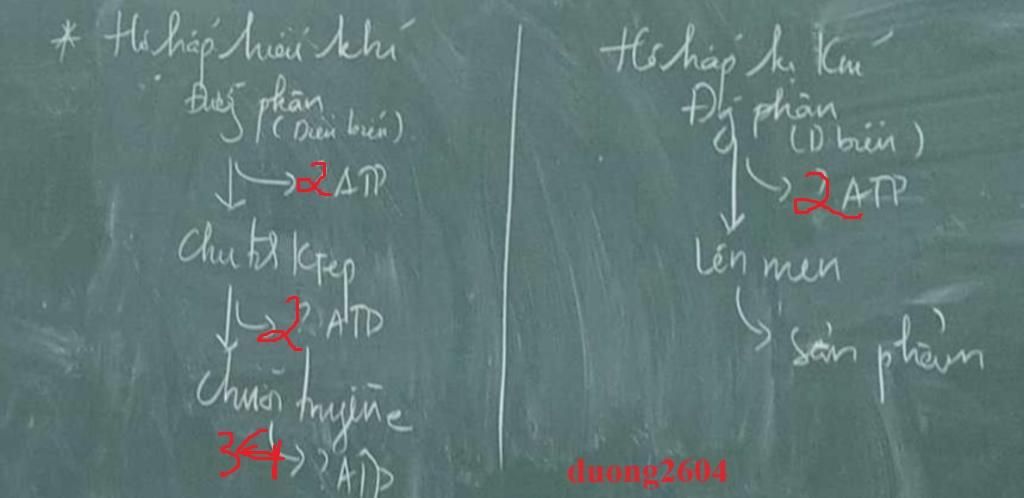 * Hô hấp hiếu khí
Đường phân
(Diễn biến)
2 ATP
Chu trình Krep
2 ? ATP
Chuỗi truyền e
34 ? ATP
Hô hấp kị khí
Đường phân
(D biến)
2 ATP
Lên men
sản phẩm
duong2604